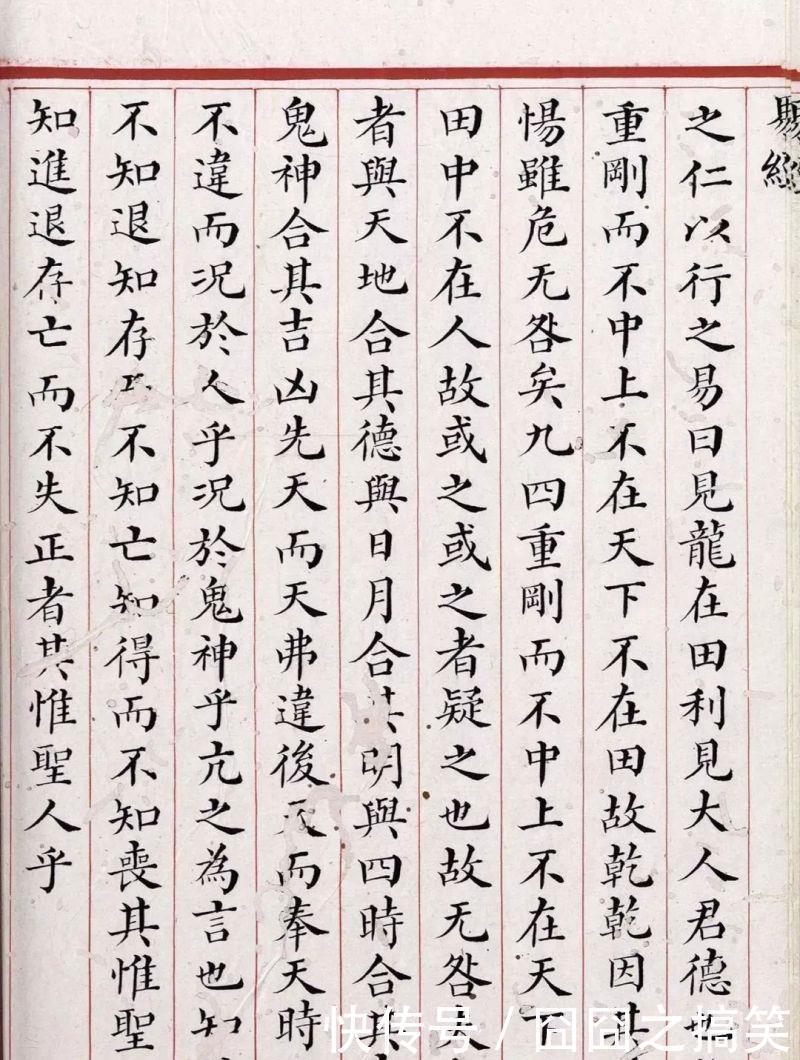 之仁以行之易曰見龍在田利見大人君德也
重剛而不中上不在天下不在田故乾乾因其
惕雖危无咎矣九四重剛而不中上不在天下
田中不在人故或之或之者疑之也故无咎夫
者與天地合其德與日月合其明與四時合其
鬼神合其吉凶先天而天弗違後天而奉天時
不違而況於人乎況於鬼神乎亢之為言也知
不知退知存而不知亡知得而不知喪其惟聖
知進退存亡而不失正者其惟聖人乎
快传号 / 囧囧之搞笑